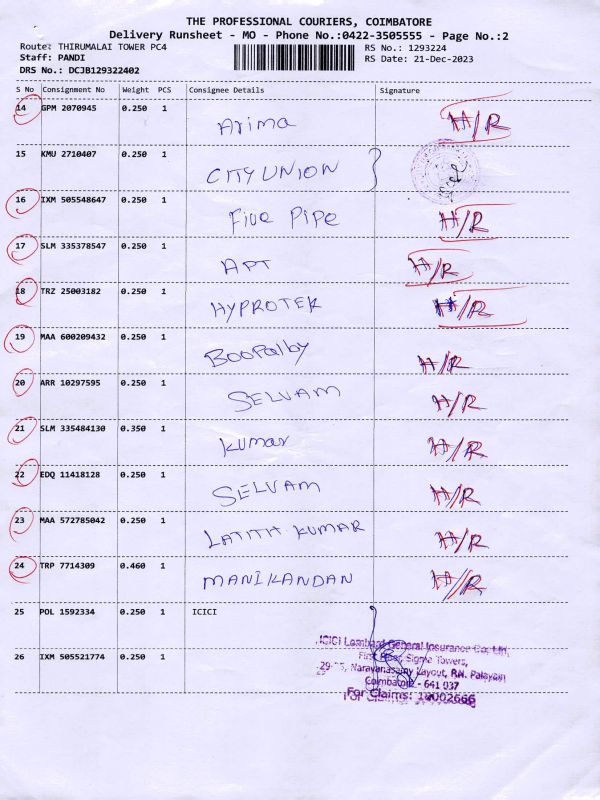 THE PROFESSIONAL COURIERS, COIMBATORE
Delivery Runsheet - MO - Phone No.:0422-3505555 - Page No.:2
Route: THIRUMALAI TOWER PC4 RS No.: 1293224
Staff: PANDI RS Date: 21-Dec-2023
DRS No.: DCJB129322402
S No Consignment No Weight PCS Consignee Details Signature
14 GPM 2070945 0.250 1 Arima H/R
15 KMU 2710407 0.250 1 CITY UNION
16 IXM 505548647 0.250 1 Five Pipe H/R
17 SLM 335378547 0.250 1 APT H/R
18 TRZ 25003182 0.250 1 HYPROTEK H/R
19 MAA 600209432 0.250 1 Boopalby H/R
20 ARR 10297595 0.250 1 SELVAM H/R
21 SLM 335484130 0.350 1 Kumar H/R
22 EDQ 11418128 0.250 1 SELVAM H/R
23 MAA 572785042 0.250 1 LATITH KUMAR H/R
24 TRP 7714309 0.460 1 MANIKANDAN H/R
25 POL 1592334 0.250 1 ICICI
26 IXM 505521774 0.250 1
ICICI Lombard General Insurance Co. Ltd.
First Floor, Sigma Towers,
Narayanasamy Layout, RN. Palayam
Coimbatore - 641 037
For Claims: 18002666